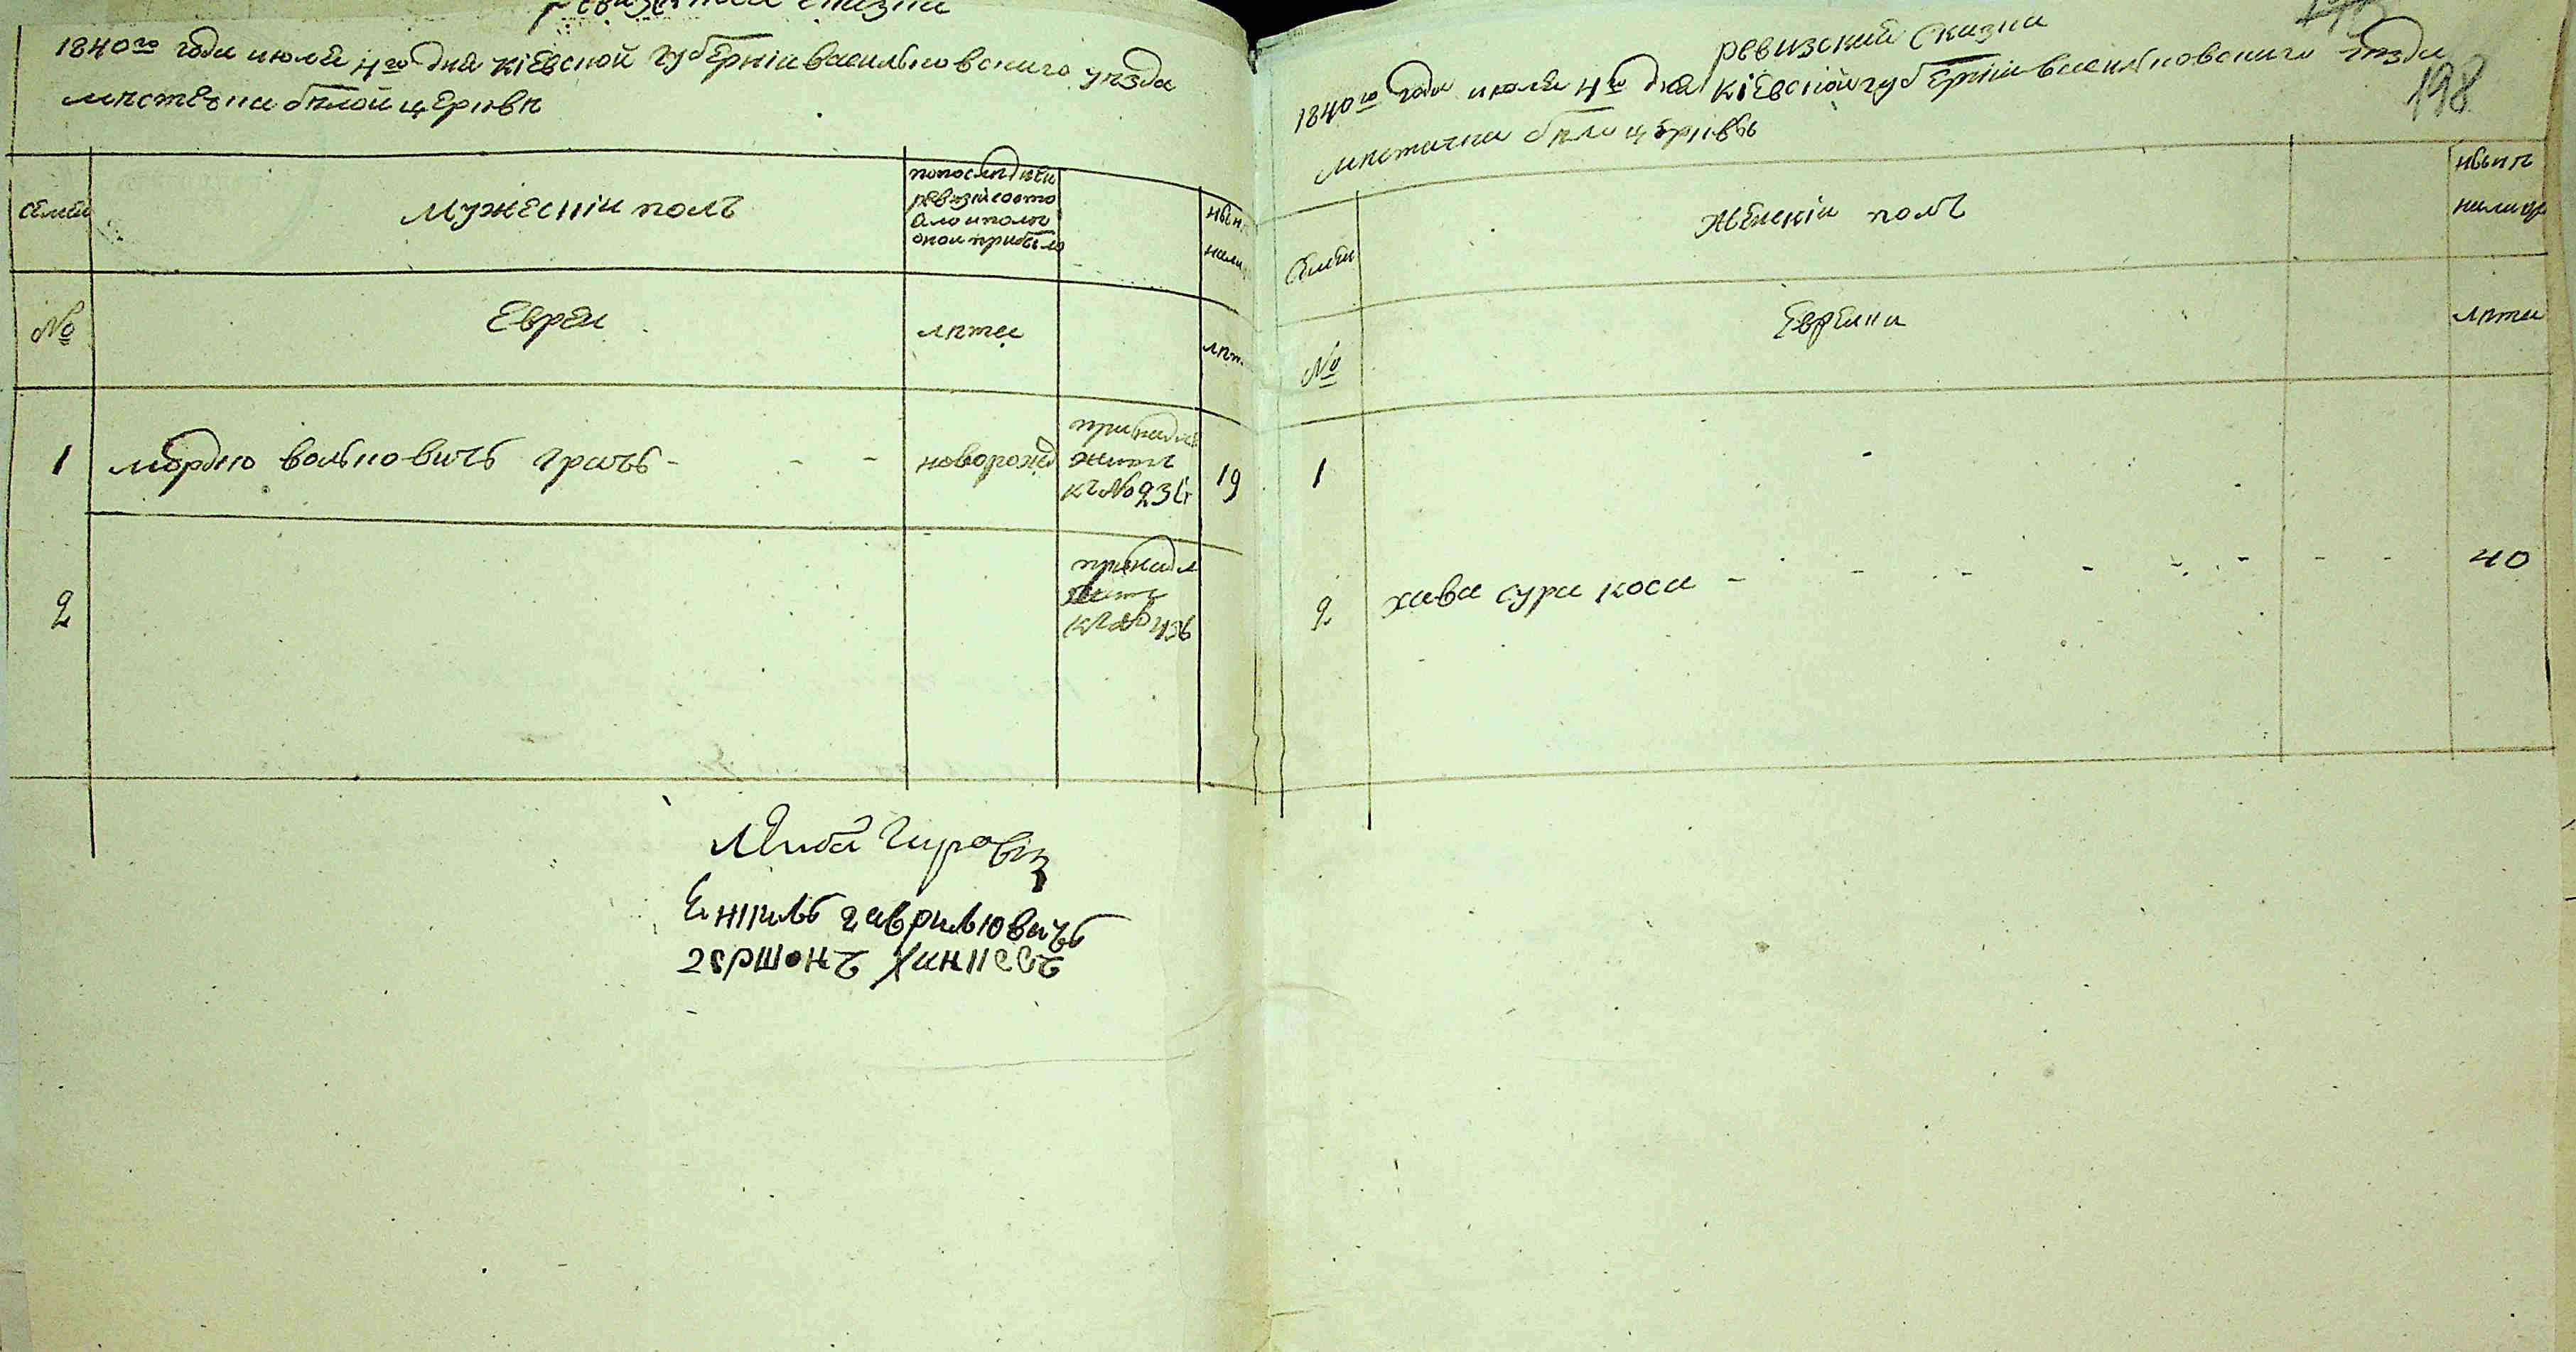 ревизская сказка
1840го года июля 4го дня кіевской губерніи васильковскаго уѣзда
мѣстечка бѣлой церквѣ
семьи
Мужескій полъ
попослѣдней
ревизіи состо
яло и после
оной прибыло
нынѣ
нали
№
Евреи
лѣта
лѣт
1 мордко волковичъ грачъ - - - новорожд 19
принадле
житъ
къ №
2
принадл
житъ
къ № 436
Лейба Гуровіч
гершонъ
ревизский сказки
1840го года июля 4го дня кіевской губерніи васильковскаго уѣзда
198
мѣстечка бѣло церквѣ
Семьи
Женскій полъ
нынѣ
налицо
№
Еврейки
лѣта
1
2 хава сура коса - - - - - - - - 40